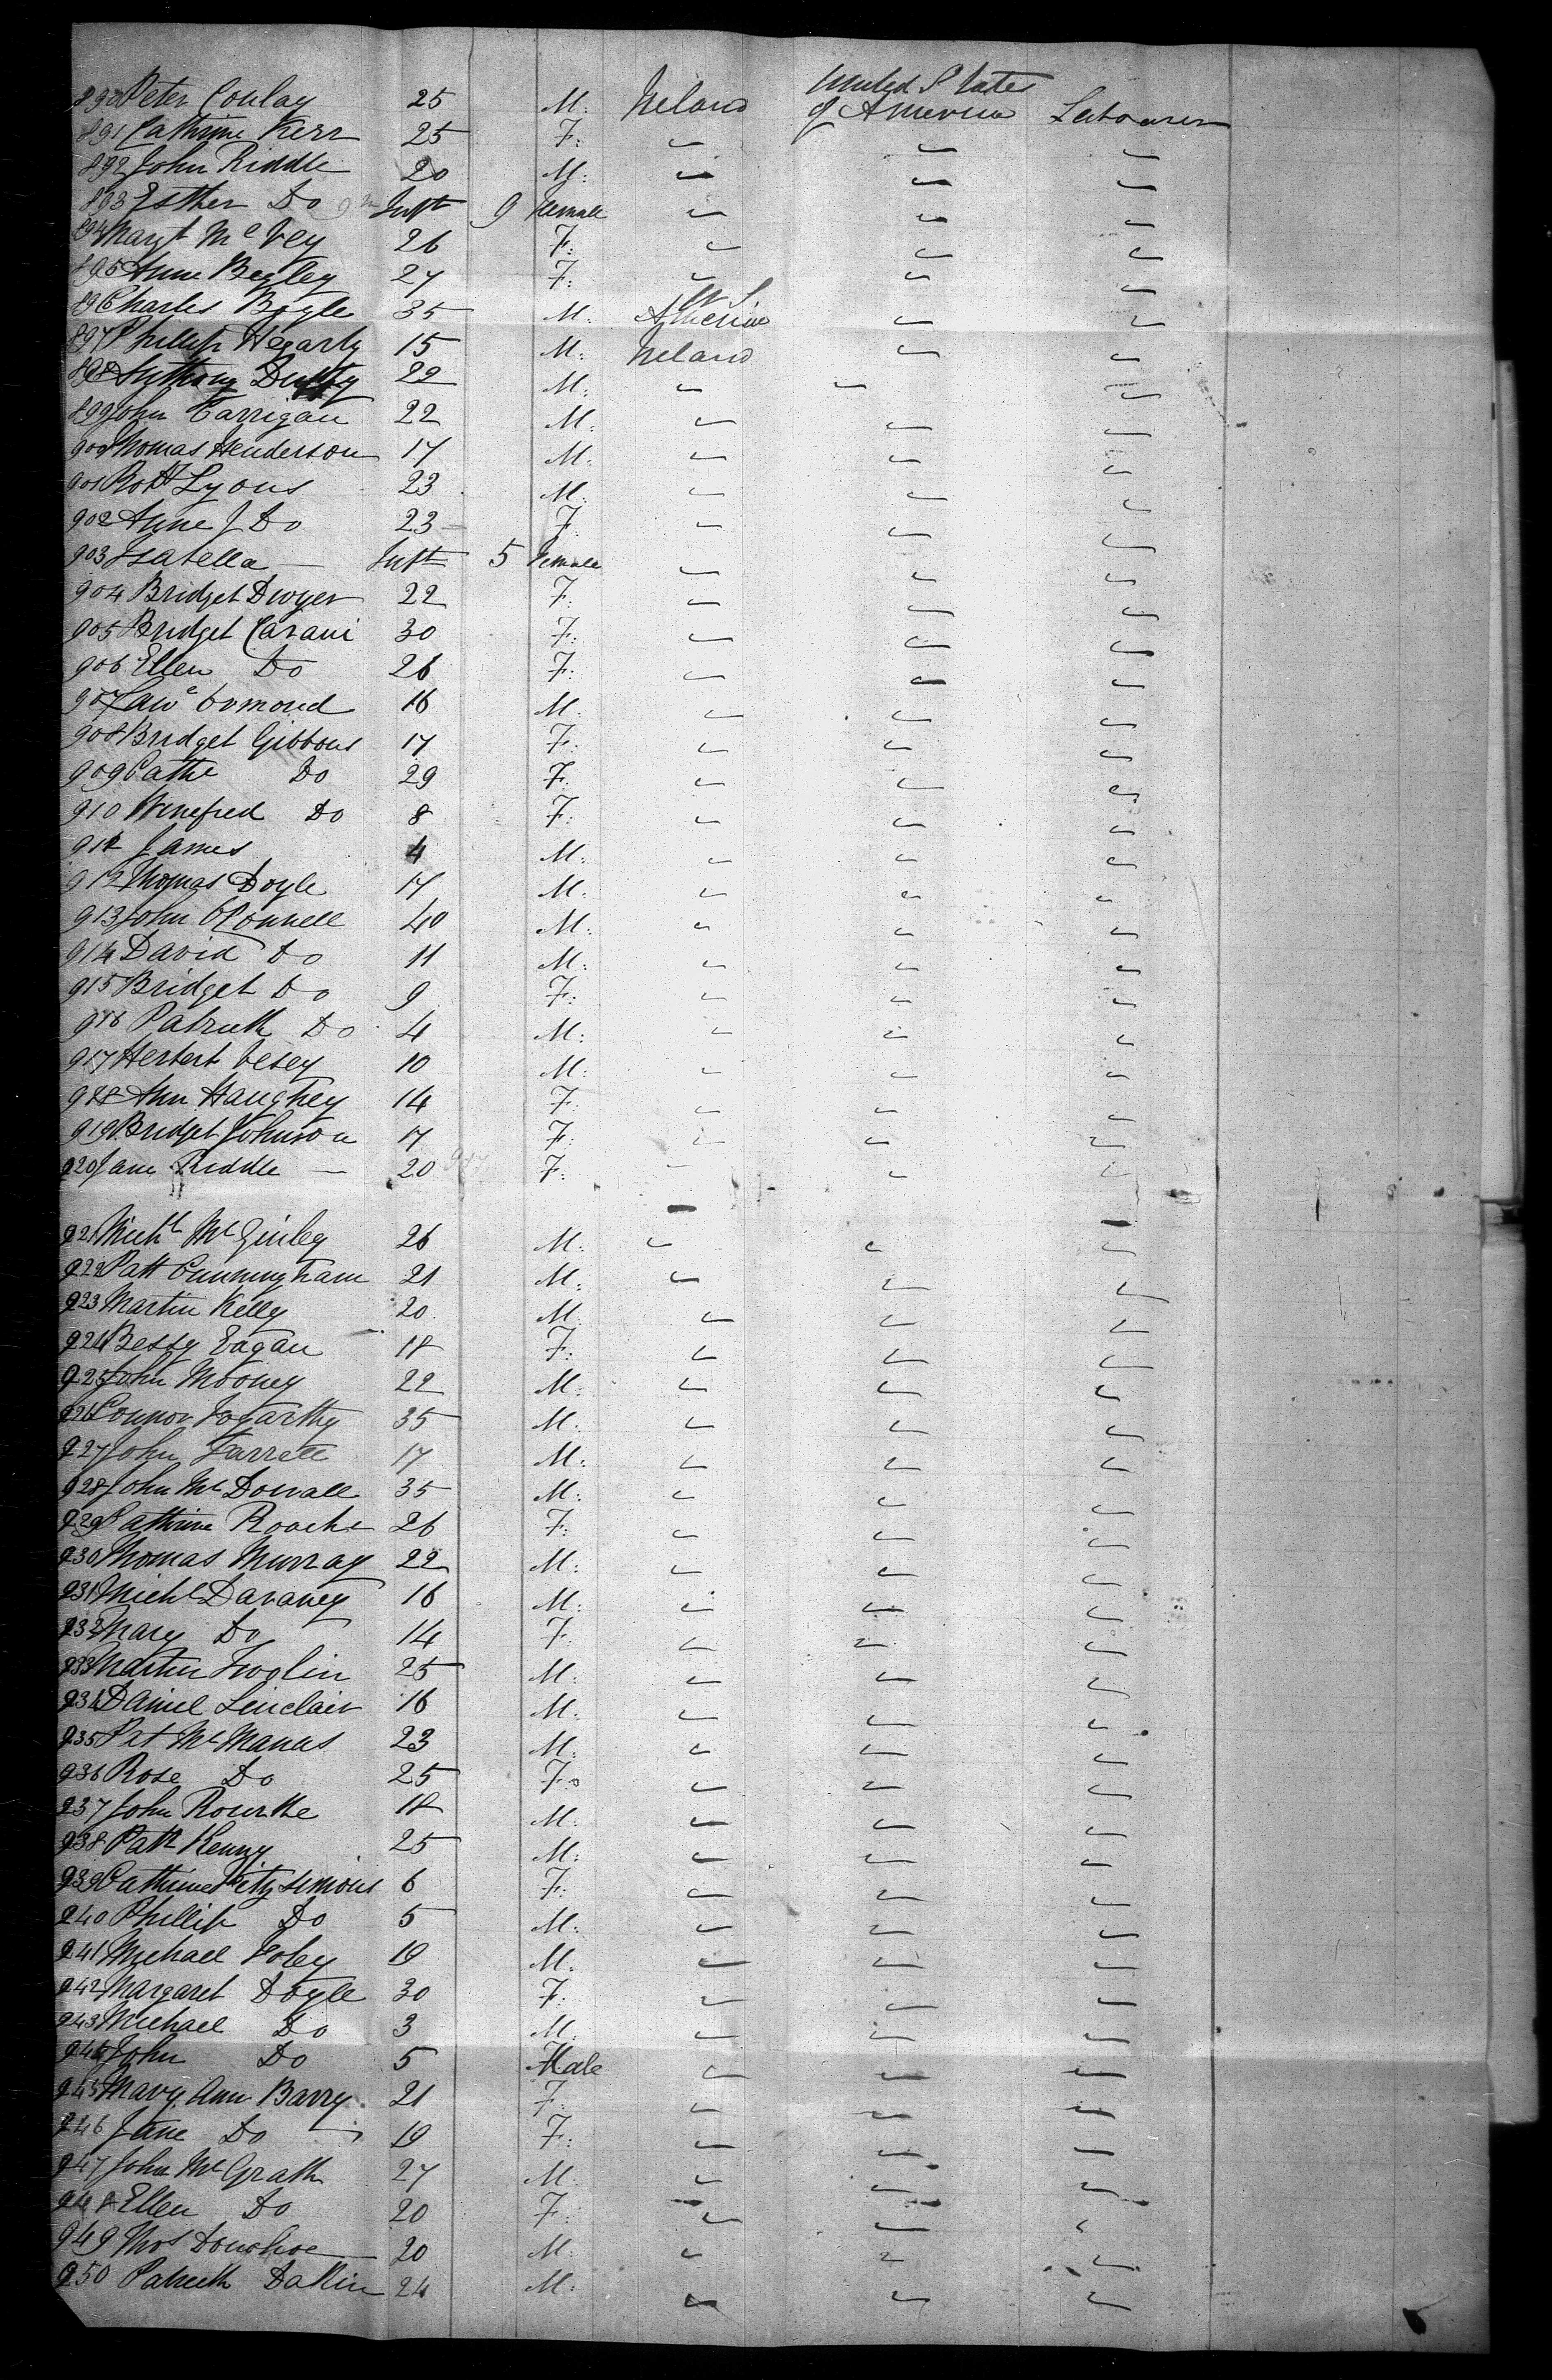 890 Peter Conlay 25 M: Ireland United States of America Labourer
891 Cathrine Kerr 25 F: " " "
892 John Riddle 20 M: " " "
893 Esther Do Inft 9 Female " " "
894 Margt McVey 26 F: " " "
895 Anne Begley 27 F: " " "
896 Charles Boyle 35 M: U S America " "
897 Phillip Hegarty 15 M: Ireland " "
898 Anthony Duffy 22 M: " " "
899 John Carrigan 22 M: " " "
900 Thomas Henderson 17 M: " " "
901 Robt Lyons 23 M: " " "
902 Anne J Do 23 F: " " "
903 Isabella — Inft 5 Female " " "
904 Bridget Dwyer 22 F: " " "
905 Bridget Casani 30 F: " " "
906 Ellen Do 26 F: " " "
907 Lawe Ormond 16 M: " " "
908 Bridget Gibbons 17 F: " " "
909 Cathe Do 29 F: " " "
910 Winefred Do 8 F: " " "
911 James 4 M: " " "
912 Thomas Doyle 17 M: " " "
913 John OConnell 40 M: " " "
914 David Do 11 M: " " "
915 Bridget Do 9 F: " " "
916 Patrick Do 4 M: " " "
917 Herbert Vesey 10 M: " " "
918 Ann Haughey 14 F: " " "
919 Bridget Johnson 17 F: " " "
920 Jane Riddle — 20 F: " " "
921 Michl McGinley 26 M: " " "
922 Patt Cunningham 21 M: " " "
923 Martin Kelly 20 M: " " "
924 Bessy Eagan 18 F: " " "
925 John Mooney 22 M: " " "
926 Connor Fogarthy 35 M: " " "
927 John Farrell 17 M: " " "
928 John McDonall 35 M: " " "
929 Cathrine Roache 26 F: " " "
930 Thomas Murray 22 M: " " "
931 Michl Davaney 16 M: " " "
932 Mary Do 14 F: " " "
933 Martin 25 M: " " "
934 Daniel Sinclair 16 M: " " "
935 Pat McManus 23 M: " " "
936 Rose Do 25 F: " " "
937 John Rourke 18 M: " " "
938 Patk Kenny 25 M: " " "
939 Cathrine Fitzsimons 6 F: " " "
940 Phillip Do 5 M: " " "
941 Michael Foley 19 M: " " "
942 Margaret Doyle 30 F: " " "
943 Michael Do 3 M: " " "
944 John Do 5 Male " " "
945 Mary Ann Barry 21 F: " " "
946 Jane Do 19 F: " " "
947 John McGrath 27 M: " " "
948 Ellen Do 20 F: " " "
949 Thos Donohoe 20 M: " " "
950 Patrick Dakin 24 M: " " "